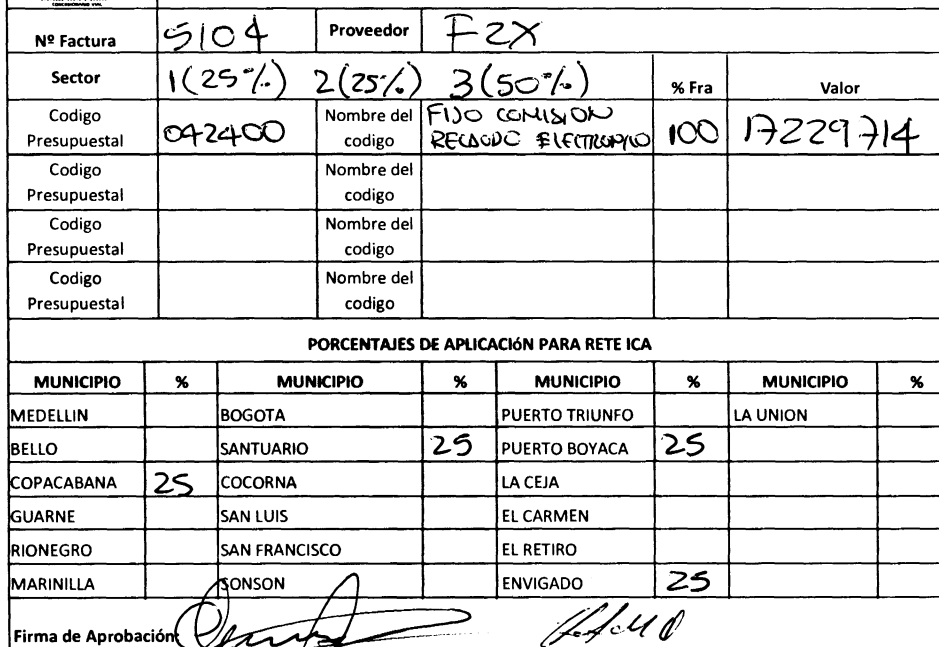 Nº Factura 5104 Proveedor F2X
Sector 1(25%) 2(25%) 3(50%) % Fra Valor
Codigo Presupuestal 042400 Nombre del codigo FIJO COMISION RECAUDO ELECTRONICO 100 17229714
Codigo Presupuestal Nombre del codigo
Codigo Presupuestal Nombre del codigo
Codigo Presupuestal Nombre del codigo
PORCENTAJES DE APLICACIÓN PARA RETE ICA
MUNICIPIO % MUNICIPIO % MUNICIPIO % MUNICIPIO %
MEDELLIN BOGOTA PUERTO TRIUNFO LA UNION
BELLO SANTUARIO 25 PUERTO BOYACA 25
COPACABANA 25 COCORNA LA CEJA
GUARNE SAN LUIS EL CARMEN
RIONEGRO SAN FRANCISCO EL RETIRO
MARINILLA SONSON ENVIGADO 25
Firma de Aprobación: